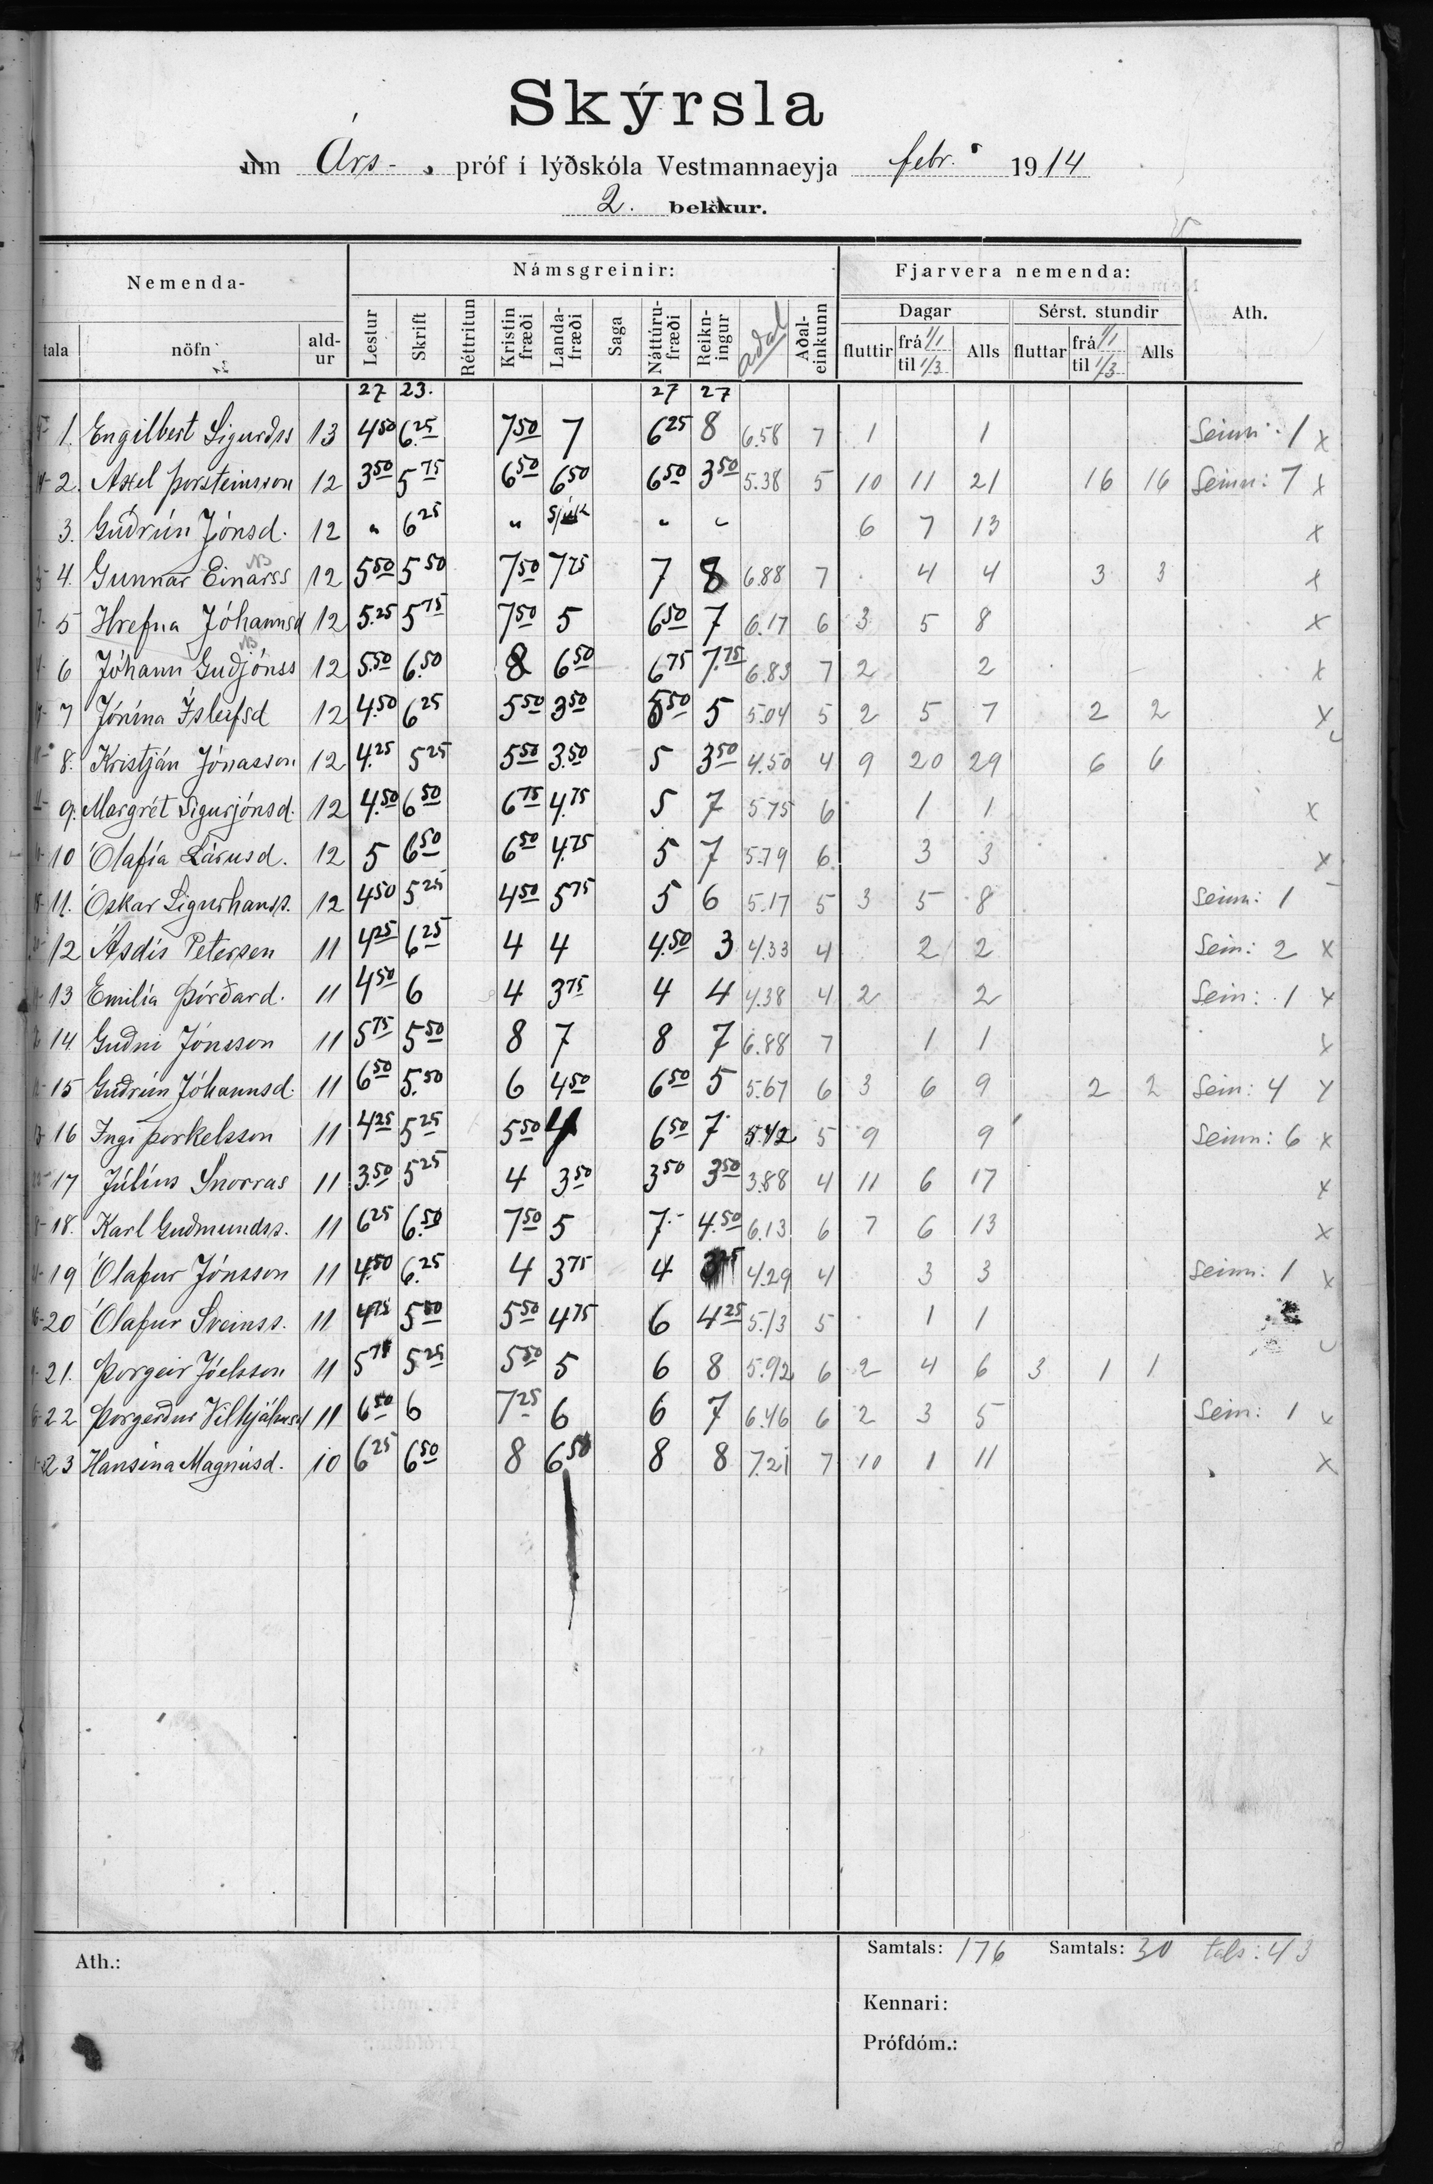 Skýrsla
um Árs- próf í lýðskóla Vestmannaeyja febr. 1914
2. bekkur.
Nemenda- Námsgreinir: Fjarvera nemenda: Ath.
Dagar Sérst. stundir
tala nöfn ald-ur Lestur Skrift Réttritun Kristin fræði Landa-fræði Saga Náttúru-fræði Reikn-ingur aðal Aðal-einkunn fluttir frá 1/1 til 1/3 Alls fluttar frá 1/1 til 1/3 Alls
27 23. 27 27
1. Engilbert Sigurðss 13 4 50 6.25 7 50 7 6 25 8 6.58 7 1 1 Seinn: 1 x
2. Axel Þorsteinsson 12 3 50 5 75 6 50 6 50 6 50 3 50 5.38 5 10 11 21 16 16 Seinn: 7 x
3. Guðrún Jónsd. 12 " 6 25 " Sjúk " " 6 7 13 x
4. Gunnar Einarss 12 5 50 5 50 7 50 7 75 7 8 6.88 7 4 4 3 3 x
5 Hrefna Jóhannsd 12 5.25 5 75 7 50 5 6 50 7 6.17 6 3 5 8 x
6 Jóhann Guðjónss 12 5.50 6.50 8 6 50 6 75 7.75 6.83 7 2 2 x
7 Jónína Ísleifsd 12 4.50 6 25 5 50 3 50 5 50 5 5.04 5 2 5 7 2 2 x
8. Kristján Jónasson 12 4.25 5 25 5 50 3.50 5 3 50 4.50 4 9 20 29 6 6
9. Margrét Sigurjónsd. 12 4.50 6 50 6 75 4.75 5 7 5.75 6 1 1 x
10 Ólafía Lárusd. 12 5 6 50 6 50 4.75 5 7 5.79 6 3 3 x
11. Óskar Sigurhanss. 12 4 50 5 25 4 50 5 75 5 6 5.17 5 3 5 8 Seinn: 1
12 Ásdís Petersen 11 4 25 6 25 4 4 4.50 3 4.33 4 2 2 Sein: 2 x
13 Emilía Þórðard. 11 4 50 6 4 3 75 4 4 4.38 4 2 2 Sein: 1 x
14. Guðni Jónsson 11 5 75 5 50 8 7 8 7 6.88 7 1 1 x
15 Guðrún Jóhannsd. 11 6 50 5.50 6 4 50 6 50 5 5.67 6 3 6 9 2 2 Sein: 4 x
16 Ingi Þorkelsson 11 4 25 5 25 5 50 4 6 50 7 5.42 5 9 9 Seinn: 6 x
17 Júlíus Snorras 11 3.50 5 25 4 3 50 3 50 3 50 3.88 4 11 6 17 x
18. Karl Guðmundss. 11 6 25 6.50 7 50 5 7 4.50 6.13 6 7 6 13 x
19 Ólafur Jónsson 11 4.50 6.25 4 3 75 4 4.29 4 3 3 Seinn: 1 x
20 Ólafur Sveinss. 11 4 75 5 50 5 50 4 75 6 4 25 5.13 5 1 1
21. Þorgeir Jóelsson 11 5 75 5 25 5 50 5 6 8 5.92 6 2 4 6 3 1 1
22 Þorgerður Vilhjálmsd 11 6 50 6 7 25 6 6 7 6.46 6 2 3 5 Sein: 1 x
23 Hansína Magnúsd. 10 6 25 6 50 8 6 50 8 8 7.21 7 10 1 11 x
Ath.: Samtals: 176 Samtals: 30 tals: 43
Kennari:
Prófdóm.: